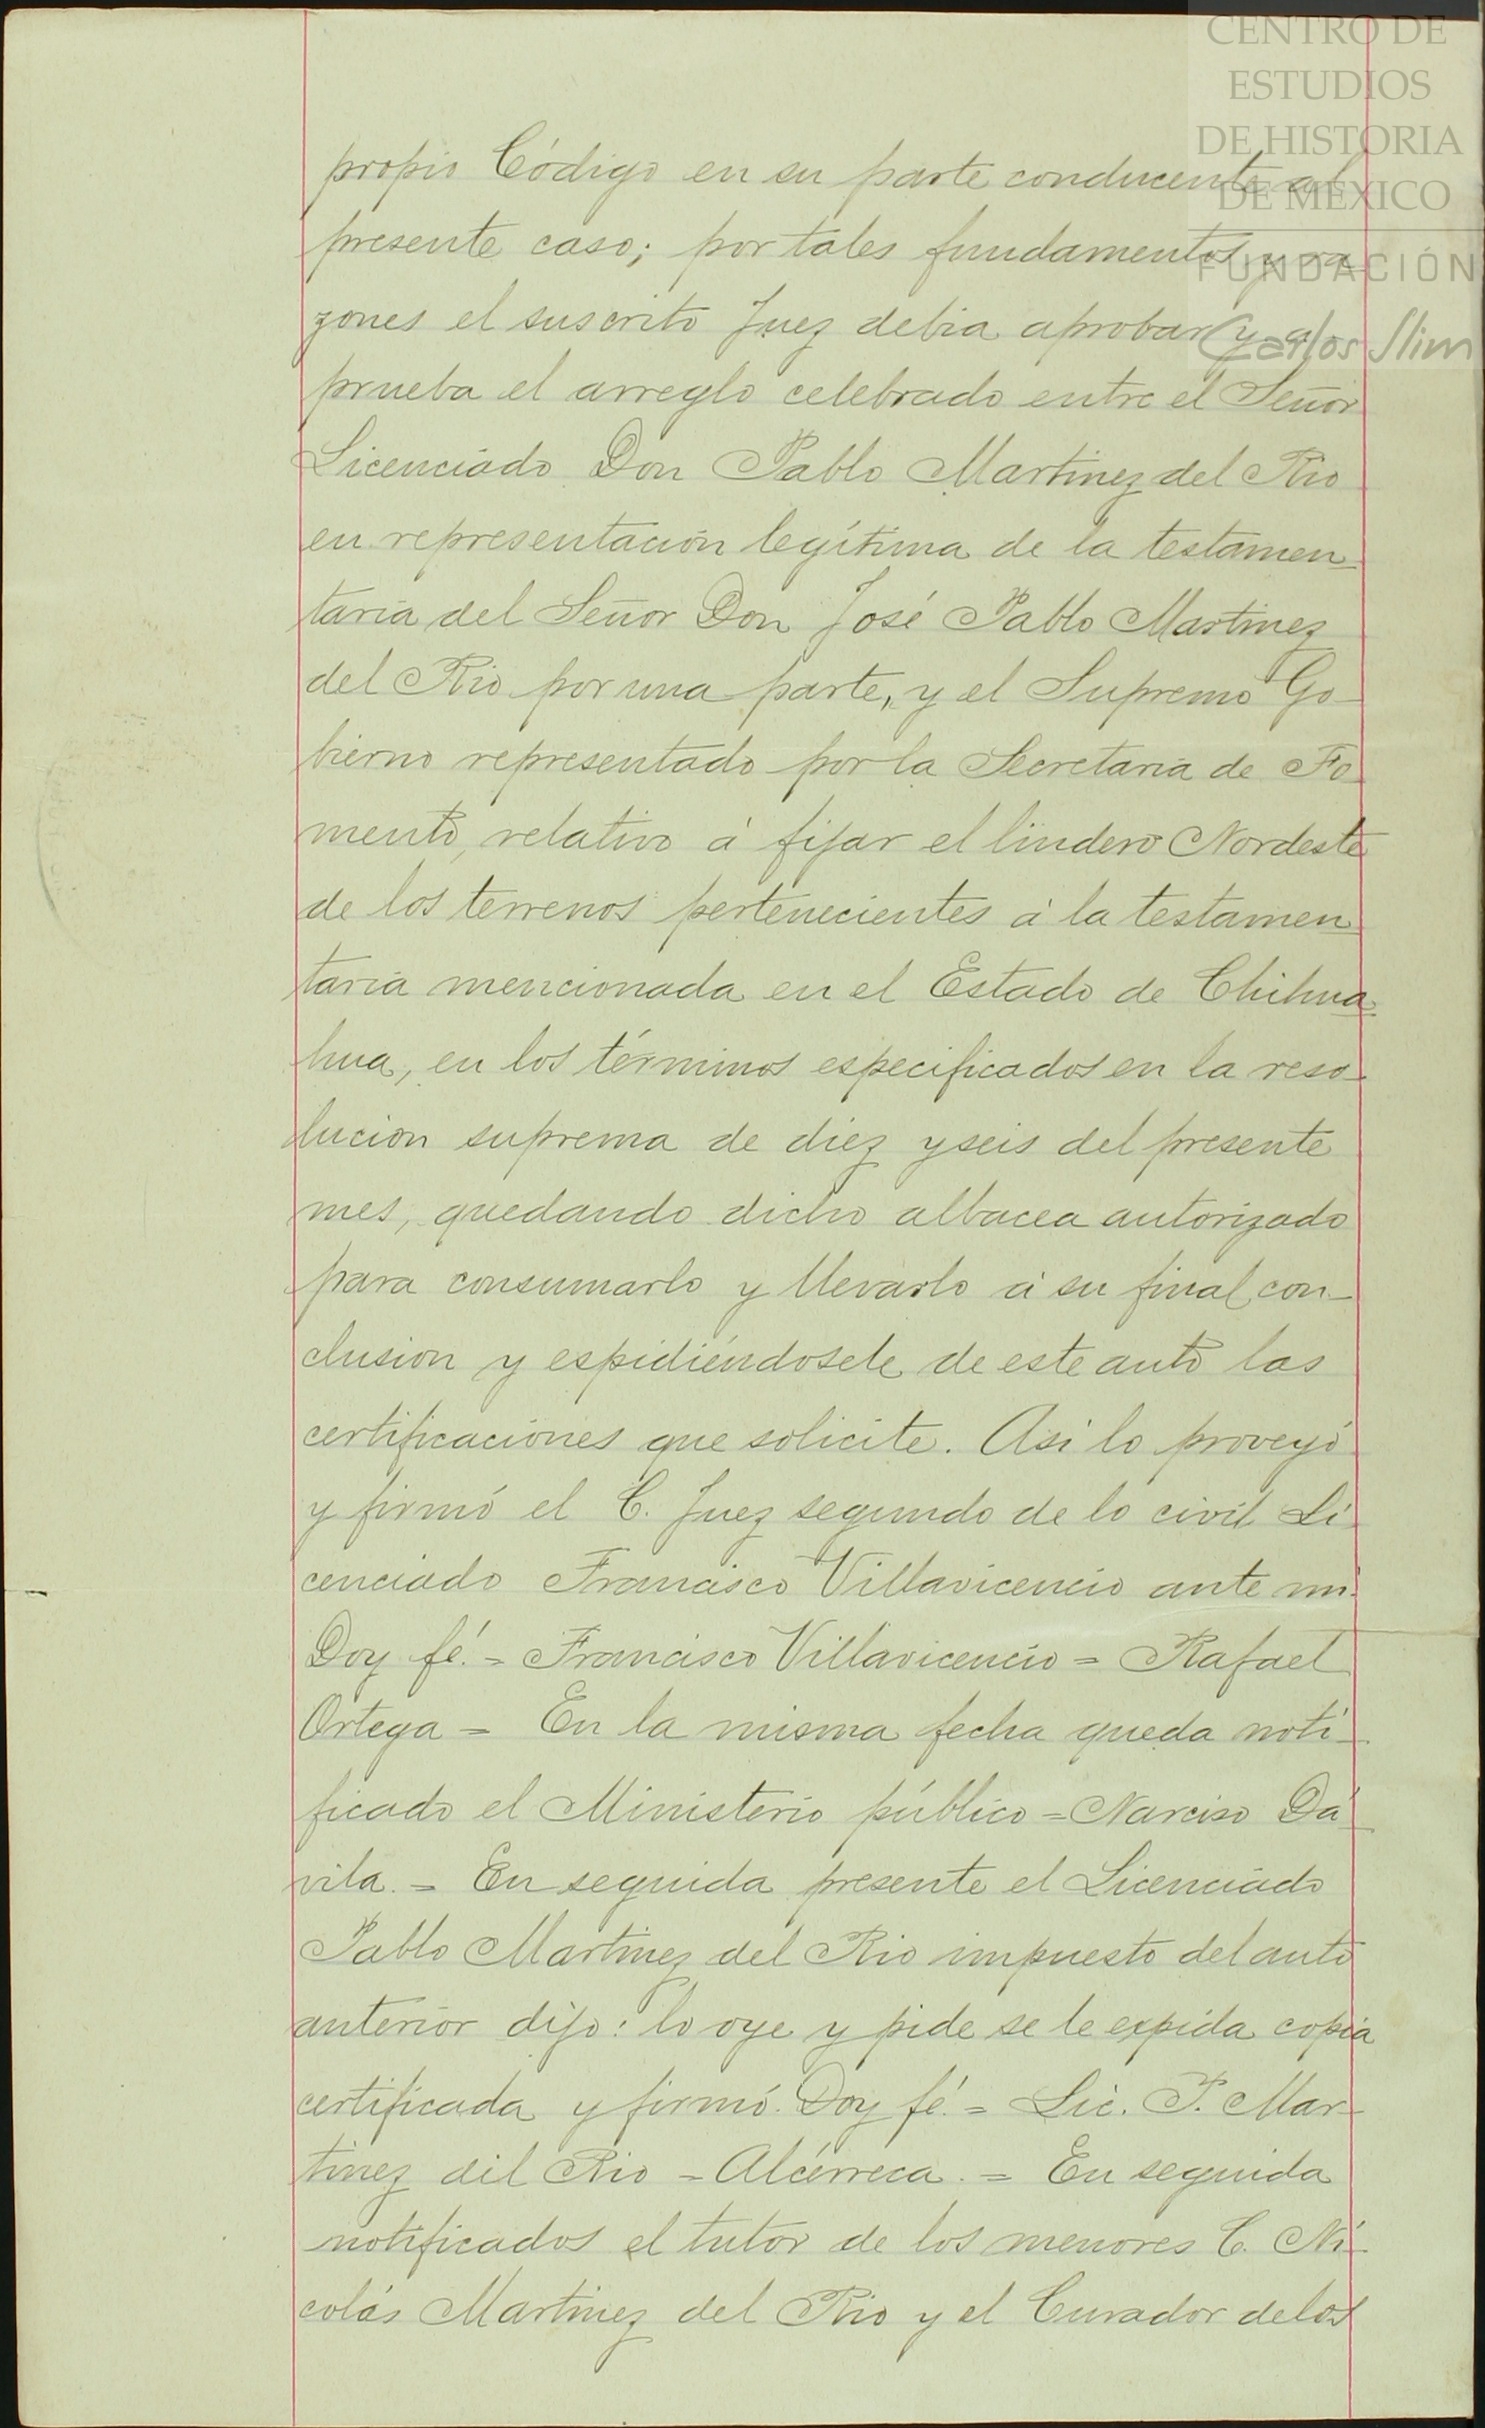 CENTRO DE
ESTUDIOS
DE HISTORIA
DE MÉXICO
FUNDACIÓN
Carlos Slim
propio Código en su parte conducente al
presente caso; por tales fundamentos y ra
zones el suscrito Juez debia aprobar y a
prueba el arreglo celebrado entre el Señor
Licenciado Don Pablo Martinez del Rio
en representación legítima de la testamen
taria del Señor Don José Pablo Martinez
del Rio por una parte, y el Supremo Go-
bierno representado por la Secretaria de Fo
mento, relativo á fijar el lindero Nordeste
de los terrenos pertenecientes á la testamen
taria mencionada en el Estado de Chihua-
hua, en los términos especificados en la reso-
lucion suprema de diez y seis del presente
mes, quedando dicho albacea autorizado
para consumarlo y llevarlo á su final con-
clusion y espidiéndosele de este auto las
certificaciones que solicite. Asi lo proveyó
y firmó el C. Juez segundo de lo civil Li
cenciado Francisco Villavicencio ante mi.
Doy fé. = Francisco Villavicencio = Rafael
Ortega = En la misma fecha queda noti-
ficado el Ministerio público = Narciso Dá
vila. = En seguida presente el Licenciado
Pablo Martinez del Rio impuesto del auto
anterior dijo: lo oye y pide se le expida copia
certificada y firmó. Doy fé. = Lic. P. Mar-
tinez del Rio = Alcérreca. = En seguida
notificados el tutor de los menores C. Ni-
colás Martinez del Rio y el Curador de los